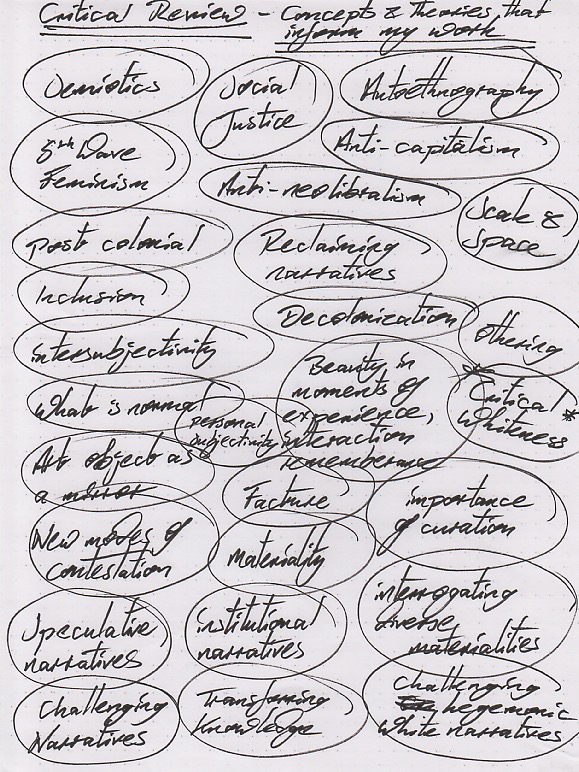 Critical Review - Concepts & Theories that
inform my work
Semiotics
Social
Justice
Autoethnography
5th Wave
Feminism
Anti-capitalism
Anti-neolibralism
Scale &
Space
Post colonial
Reclaining
narratives
Inclusion
Decolonization
Othering
intersubjectivity
Beauty in
moments of
experience,
interaction
rememberance
What is normal
personal
subjectivity
*Critical *
Whiteness
Art object as
a mirror
Facture
importance
of curation
New modes of
contestation
Materiality
interrogating
diverse
materialities
Speculative
narratives
institutional
narratives
Challenging
Narratives
Transforming
Knowledge
Challenging
hegemonic
white narratives